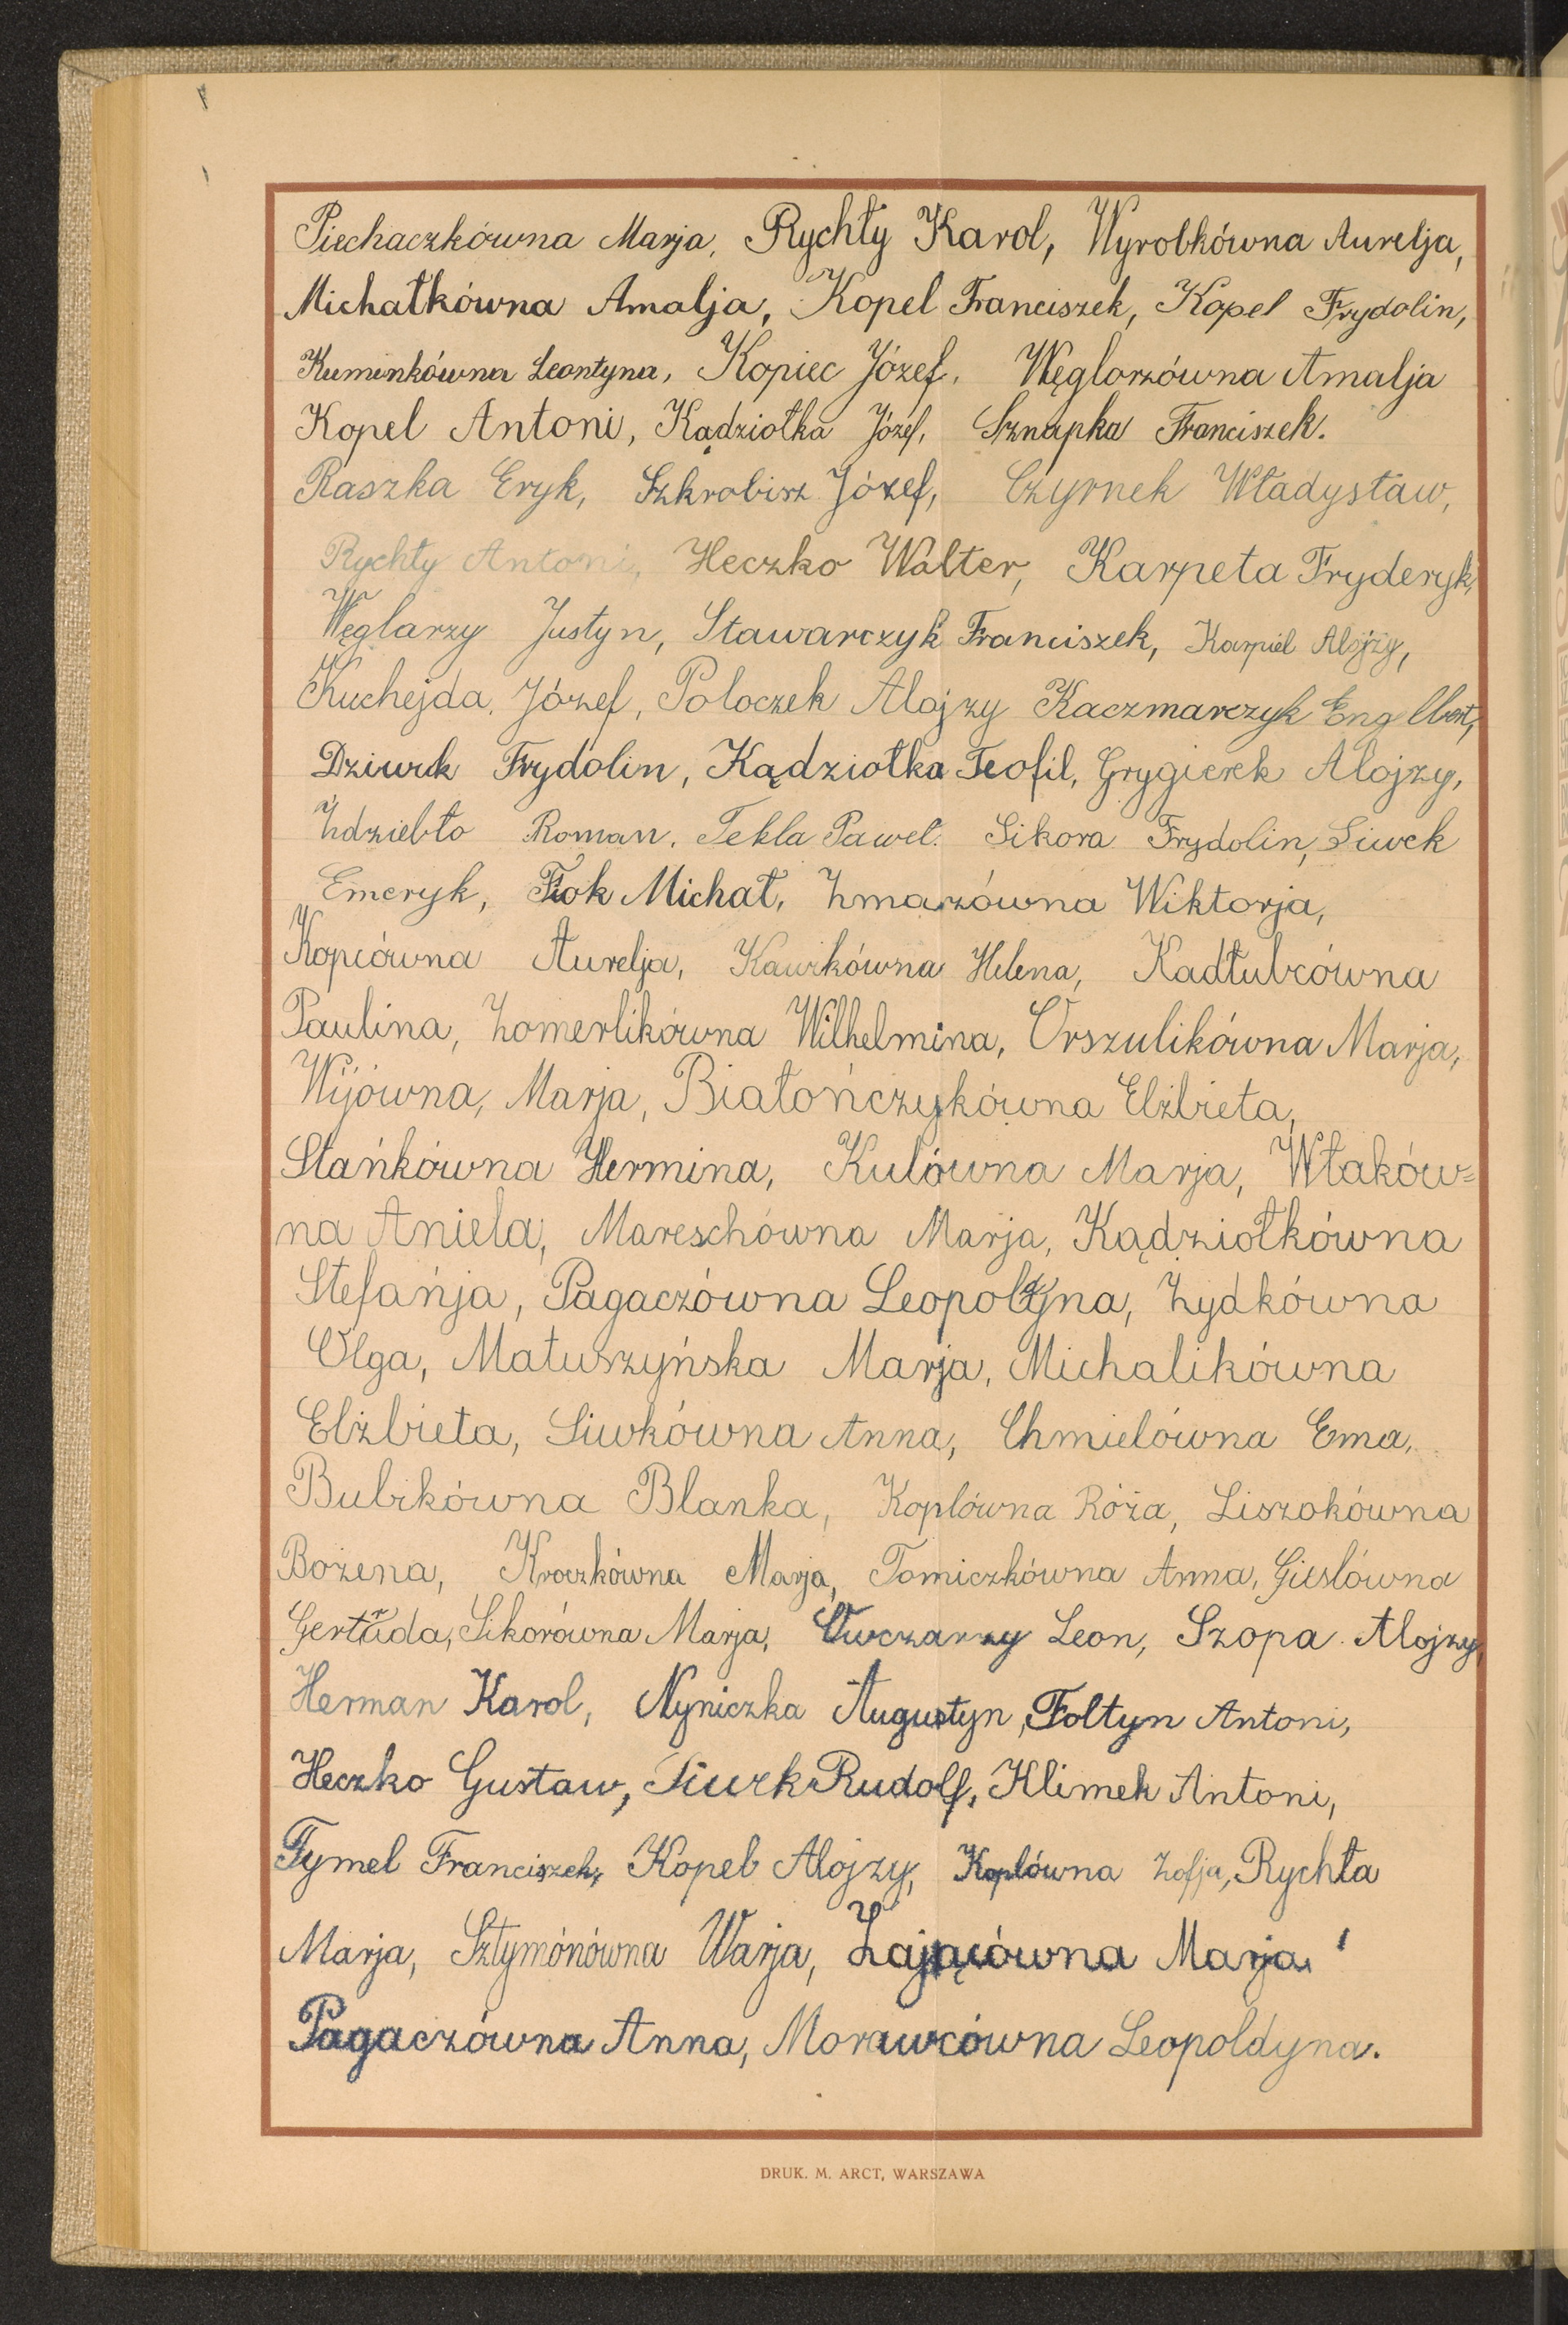 Piechaczkówna Marja, Rychły Karol, Wyrobkówna Aurelja,
Michałkówna Amalja, Kopel Franciszek, Kopel Frydolin,
Kuminkówna Leontyna, Kopiec Józef, Węglorzówna Amalja
Kopel Antoni, Kądziołka Józef, Sznapka Franciszek.
Raszka Eryk, Szkrobisz Józef, Czyrnek Władysław,
Rychły Antoni, Heczko Walter, Karpeta Fryderyk,
Węglarzy Justyn, Stawarczyk Franciszek, Karpiel Alojzy,
Kuchejda Józef, Poloczek Alojzy Kaczmarczyk Engelbert,
Dziurk Frydolin, Kądziołka Teofil, Grygierek Alojzy,
Żdziebło Roman, Tekla Paweł. Sikora Frydolin, Siwek
Emeryk, Fiok Michał, Zmarzówna Wiktorja,
Kopcówna Aurelja, Kawikówna Helena, Kadłubcówna
Paulina, Zomerlikówna Wilhelmina, Orszulikówna Marja,
Wijówna, Marja, Białończykówna Elżbieta,
Stańkówna Hermina, Kulówna Marja, Właków=
na Aniela, Mareschówna Marja, Kądziołkówna
Stefańja, Pagaczówna Leopoldyna, Zydkówna
Olga, Matuszyńska Marja, Michalikówna
Elżbieta, Siwkówna Anna, Chmielówna Ema,
Bubikówna Blanka, Koplówna Róża, Liszokówna
Bożena, Kroczkówna Marja, Tomiczkówna Anna, Gieslówna
Gertruda, Sikorówna Marja, Owczarzy Leon, Szopa Alojzy,
Herman Karol, Nyniczka Augustyn, Foltyn Antoni,
Heczko Gustaw, Rudolf, Klimek Antoni,
Tymel Franciszek, Kopel Alojzy, Koplówna Zofja, Rychła
Marja, Sztymónówna Marja, Zającówna Marja
Pagaczówna Anna, Morawcówna Leopoldyna.
DRUK. M. ARCT, WARSZAWA